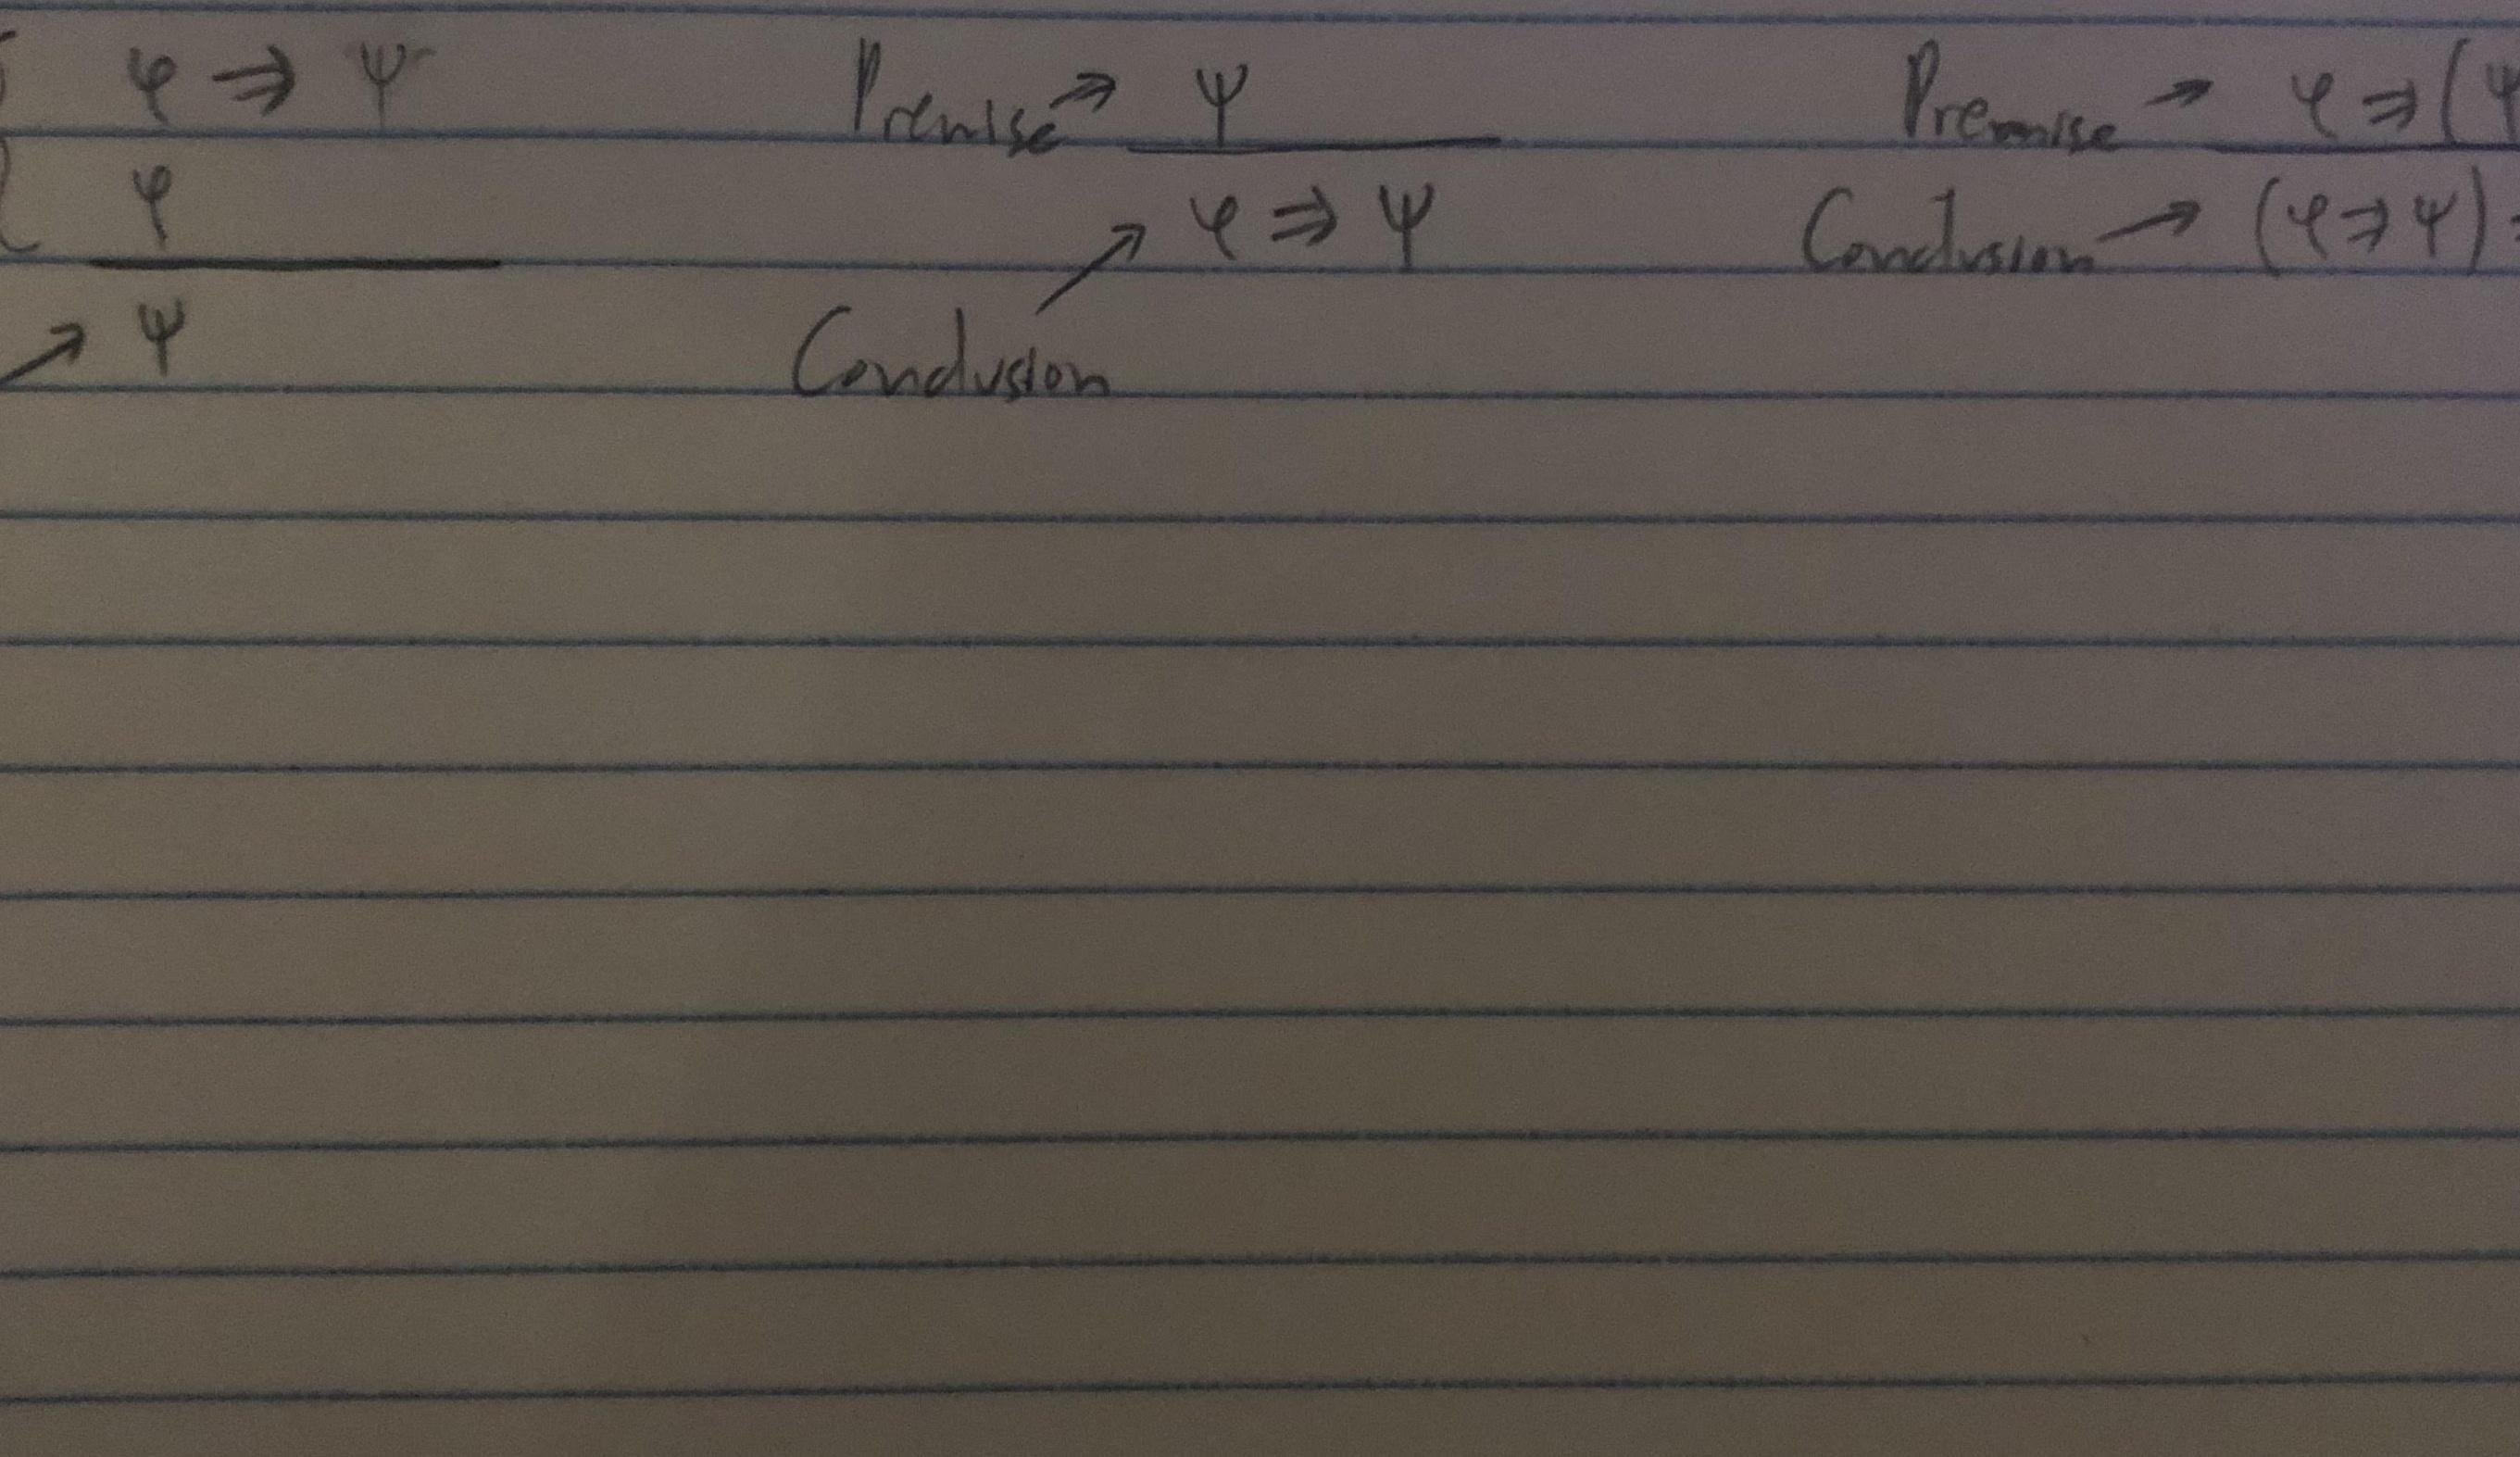 φ ⇒ Ψ
φ
→ Ψ
Premise → Ψ
φ ⇒ Ψ
Conclusion →
Premise → φ ⇒ (Ψ
Conclusion → (φ ⇒ Ψ)